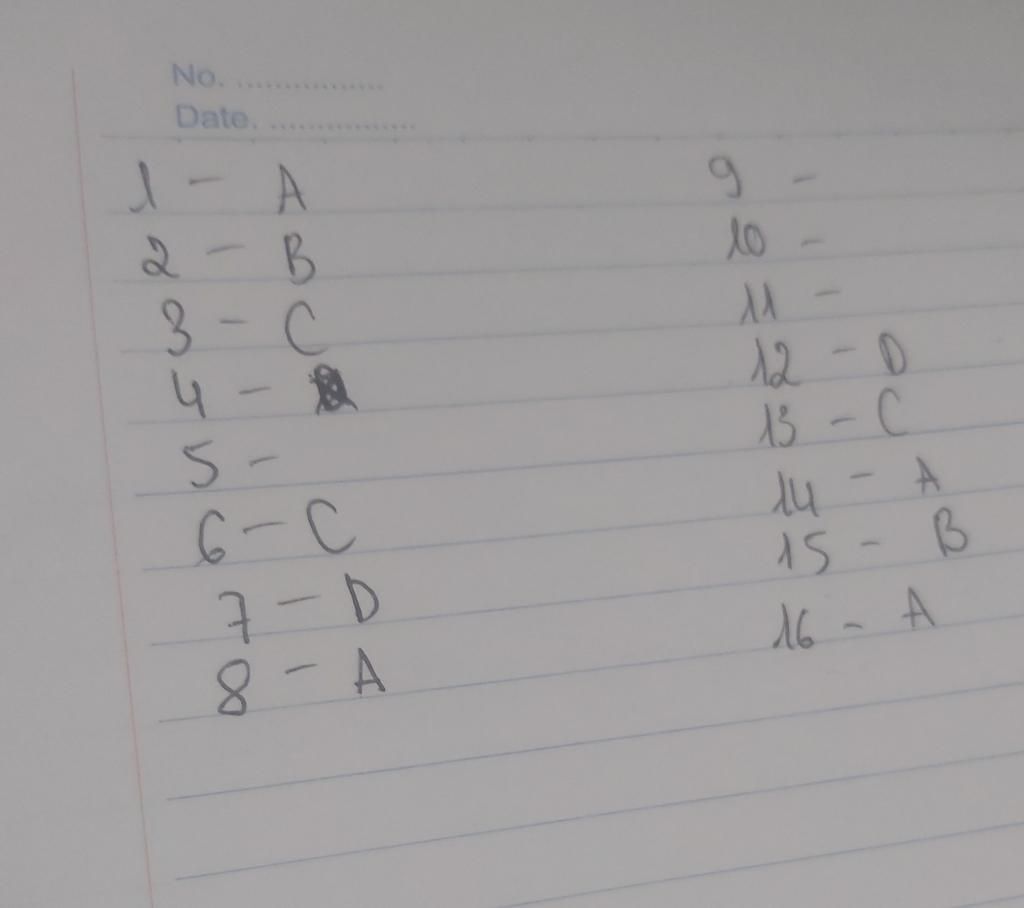 No. ................
Date. ................
1 - A
2 - B
3 - C
4 -
5 -
6 - C
7 - D
8 - A
9 -
10 -
11 -
12 - D
13 - C
14 - A
15 - B
16 - A